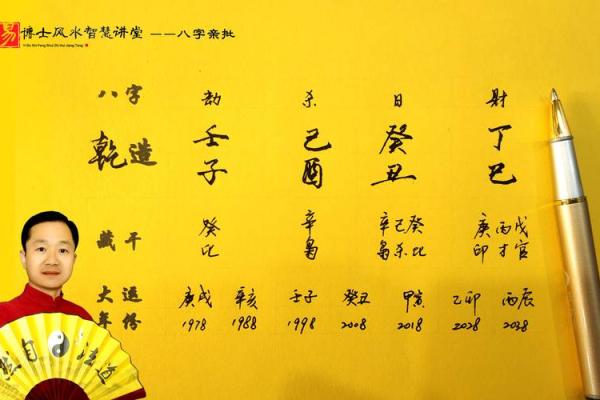 易 博士风水智慧讲堂 ——八字亲批
Yi Bo Shi Feng Shui Zhi Hui Jiang Tang
八字 劫 杀 日 财
乾造 壬 己 癸 丁
子 酉 丑 巳
藏干 癸 辛 辛己癸 庚丙戊
比 枭 枭杀比 印才官
大运 庚戌 辛亥 壬子 癸丑 甲寅 乙卯 丙辰
年份 1978 1988 1998 2008 2018 2028 2038
自 法道